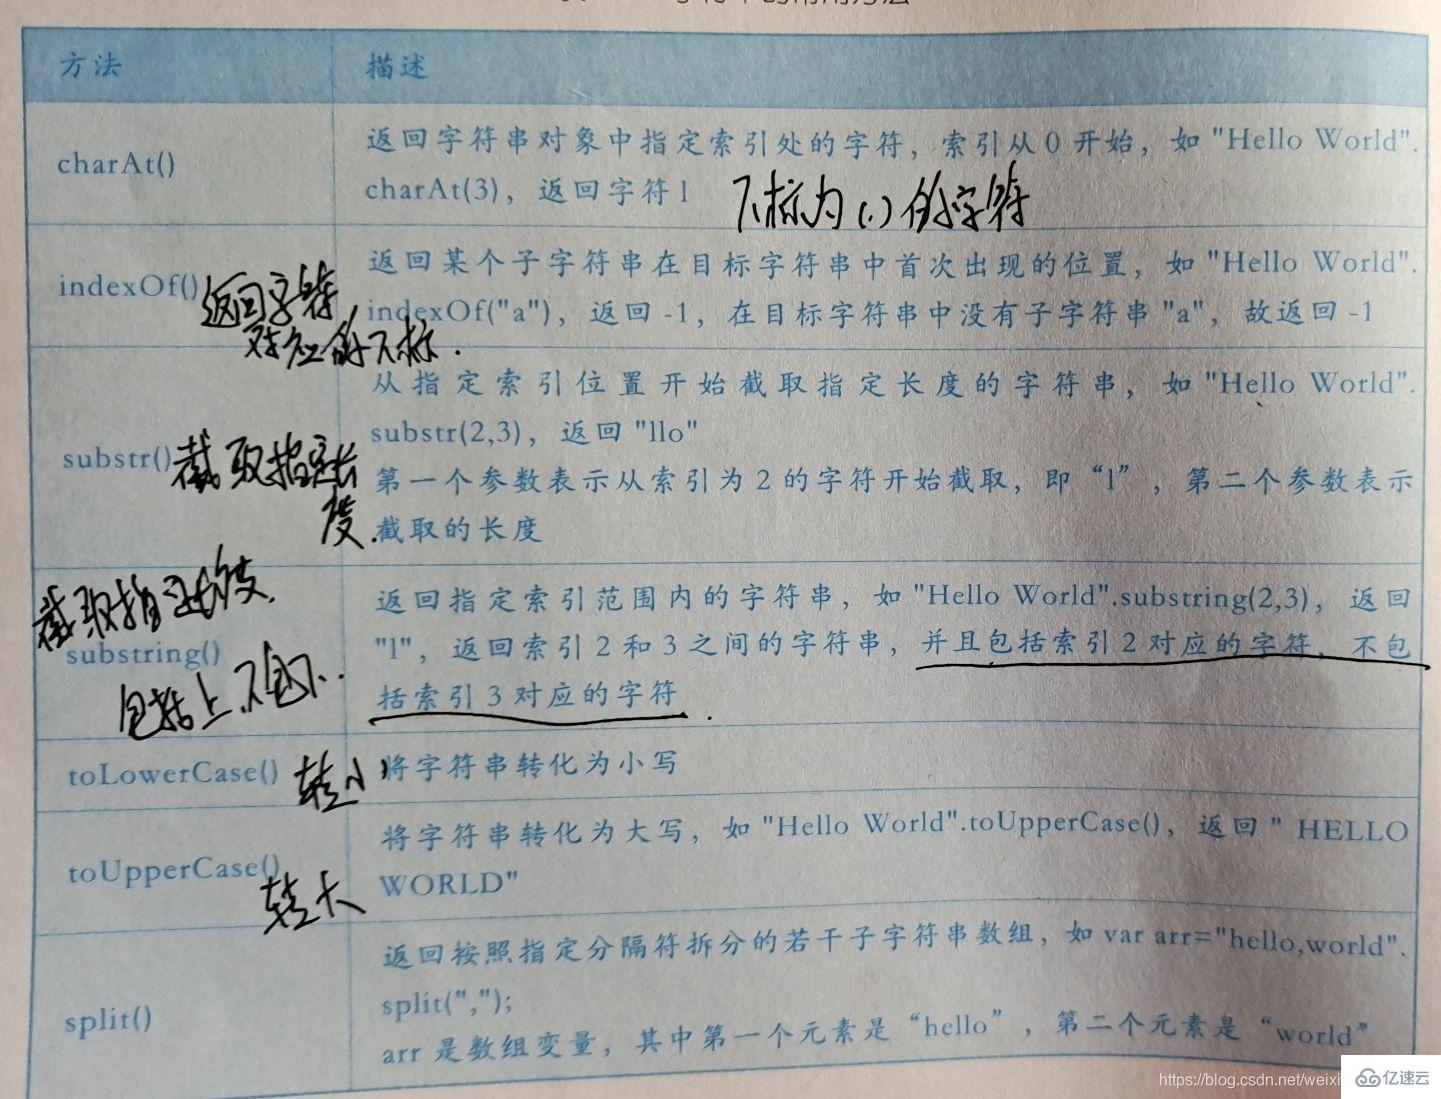 方法 描述
charAt()
返回字符串对象中指定索引处的字符，索引从0开始，如"Hello World".
charAt(3)，返回字符l
下标为(.)的字符
indexOf()
返回字符
对应的下标.
返回某个子字符串在目标字符串中首次出现的位置，如"Hello World".
indexOf("a")，返回-1，在目标字符串中没有子字符串"a"，故返回-1
substr()
截取指定长
度.
从指定索引位置开始截取指定长度的字符串，如"Hello World".
substr(2,3)，返回"llo"
第一个参数表示从索引为2的字符开始截取，即“l”，第二个参数表示
截取的长度
截取指定
substring()
包括上.不包下.
返回指定索引范围内的字符串，如"Hello World".substring(2,3)，返回
"l"，返回索引2和3之间的字符串，并且包括索引2对应的字符，不包
括索引3对应的字符
toLowerCase()
转小
将字符串转化为小写
toUpperCase()
转大
将字符串转化为大写，如"Hello World".toUpperCase()，返回" HELLO
WORLD"
split()
返回按照指定分隔符拆分的若干子字符串数组，如var arr="hello,world".
split(",");
arr是数组变量，其中第一个元素是“hello”，第二个元素是“world”
https://blog.csdn.net/weixi
亿速云